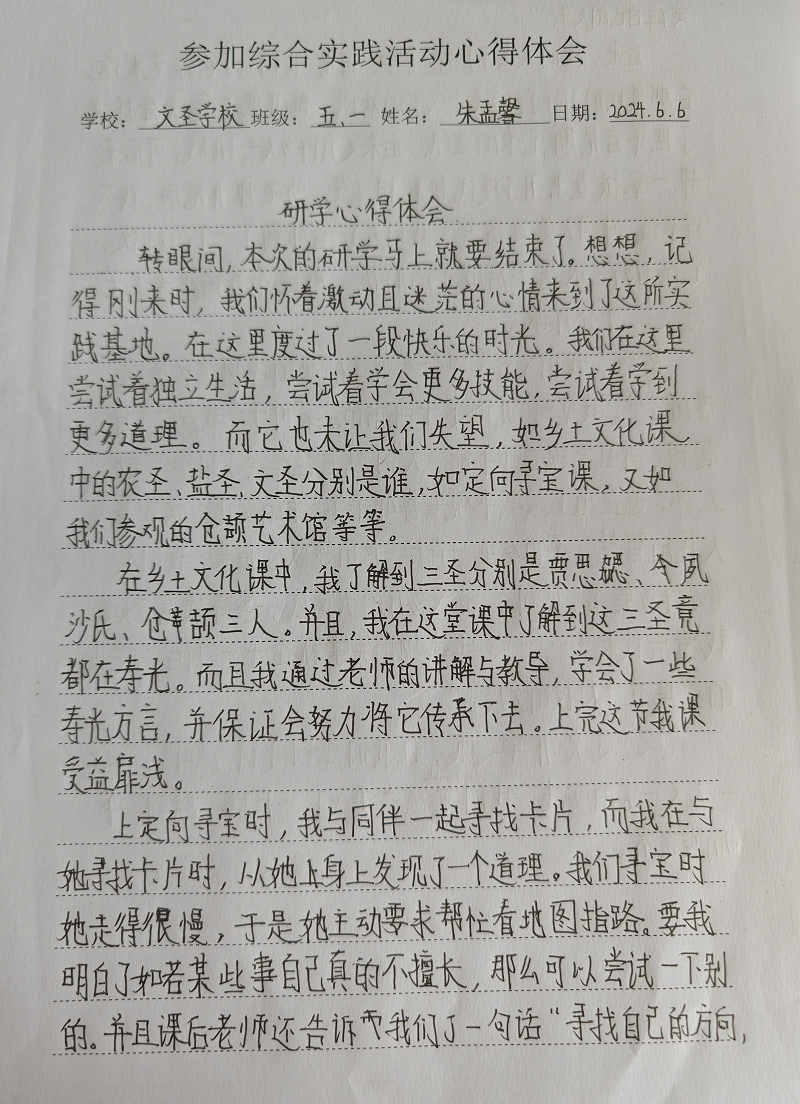 参加综合实践活动心得体会
学校：文圣学校班级：五、一 姓名：朱孟馨 日期：2024.6.6
研学心得体会
转眼间，本次的研学马上就要结束了。想想，记
得刚来时，我们怀着激动且迷茫的心情来到了这所实
践基地。在这里度过了一段快乐的时光。我们在这里
尝试着独立生活，尝试着学会更多技能，尝试着学到
更多道理。而它也未让我们失望，如乡土文化课
中的农圣、盐圣、文圣分别是谁，如定向寻宝课，又如
我们参观的仓颉艺术馆等等。
在乡土文化课中，我了解到三圣分别是贾思勰、夙
沙氏、仓颉三人。并且，我在这堂课中了解到这三圣竟
都在寿光。而且我通过老师的讲解与教导，学会了一些
寿光方言，并保证会努力将它传承下去。上完这节我课
受益扉浅。
上定向寻宝时，我与同伴一起寻找卡片，而我在与
她寻找卡片时，从她身上发现了一个道理。我们寻宝时
她走得很慢，于是她主动要求帮忙看地图指路。要我
明白了如若某些事自己真的不擅长，那么可以尝试一下别
的。并且课后老师还告诉我们了一句话“寻找自己的方向，